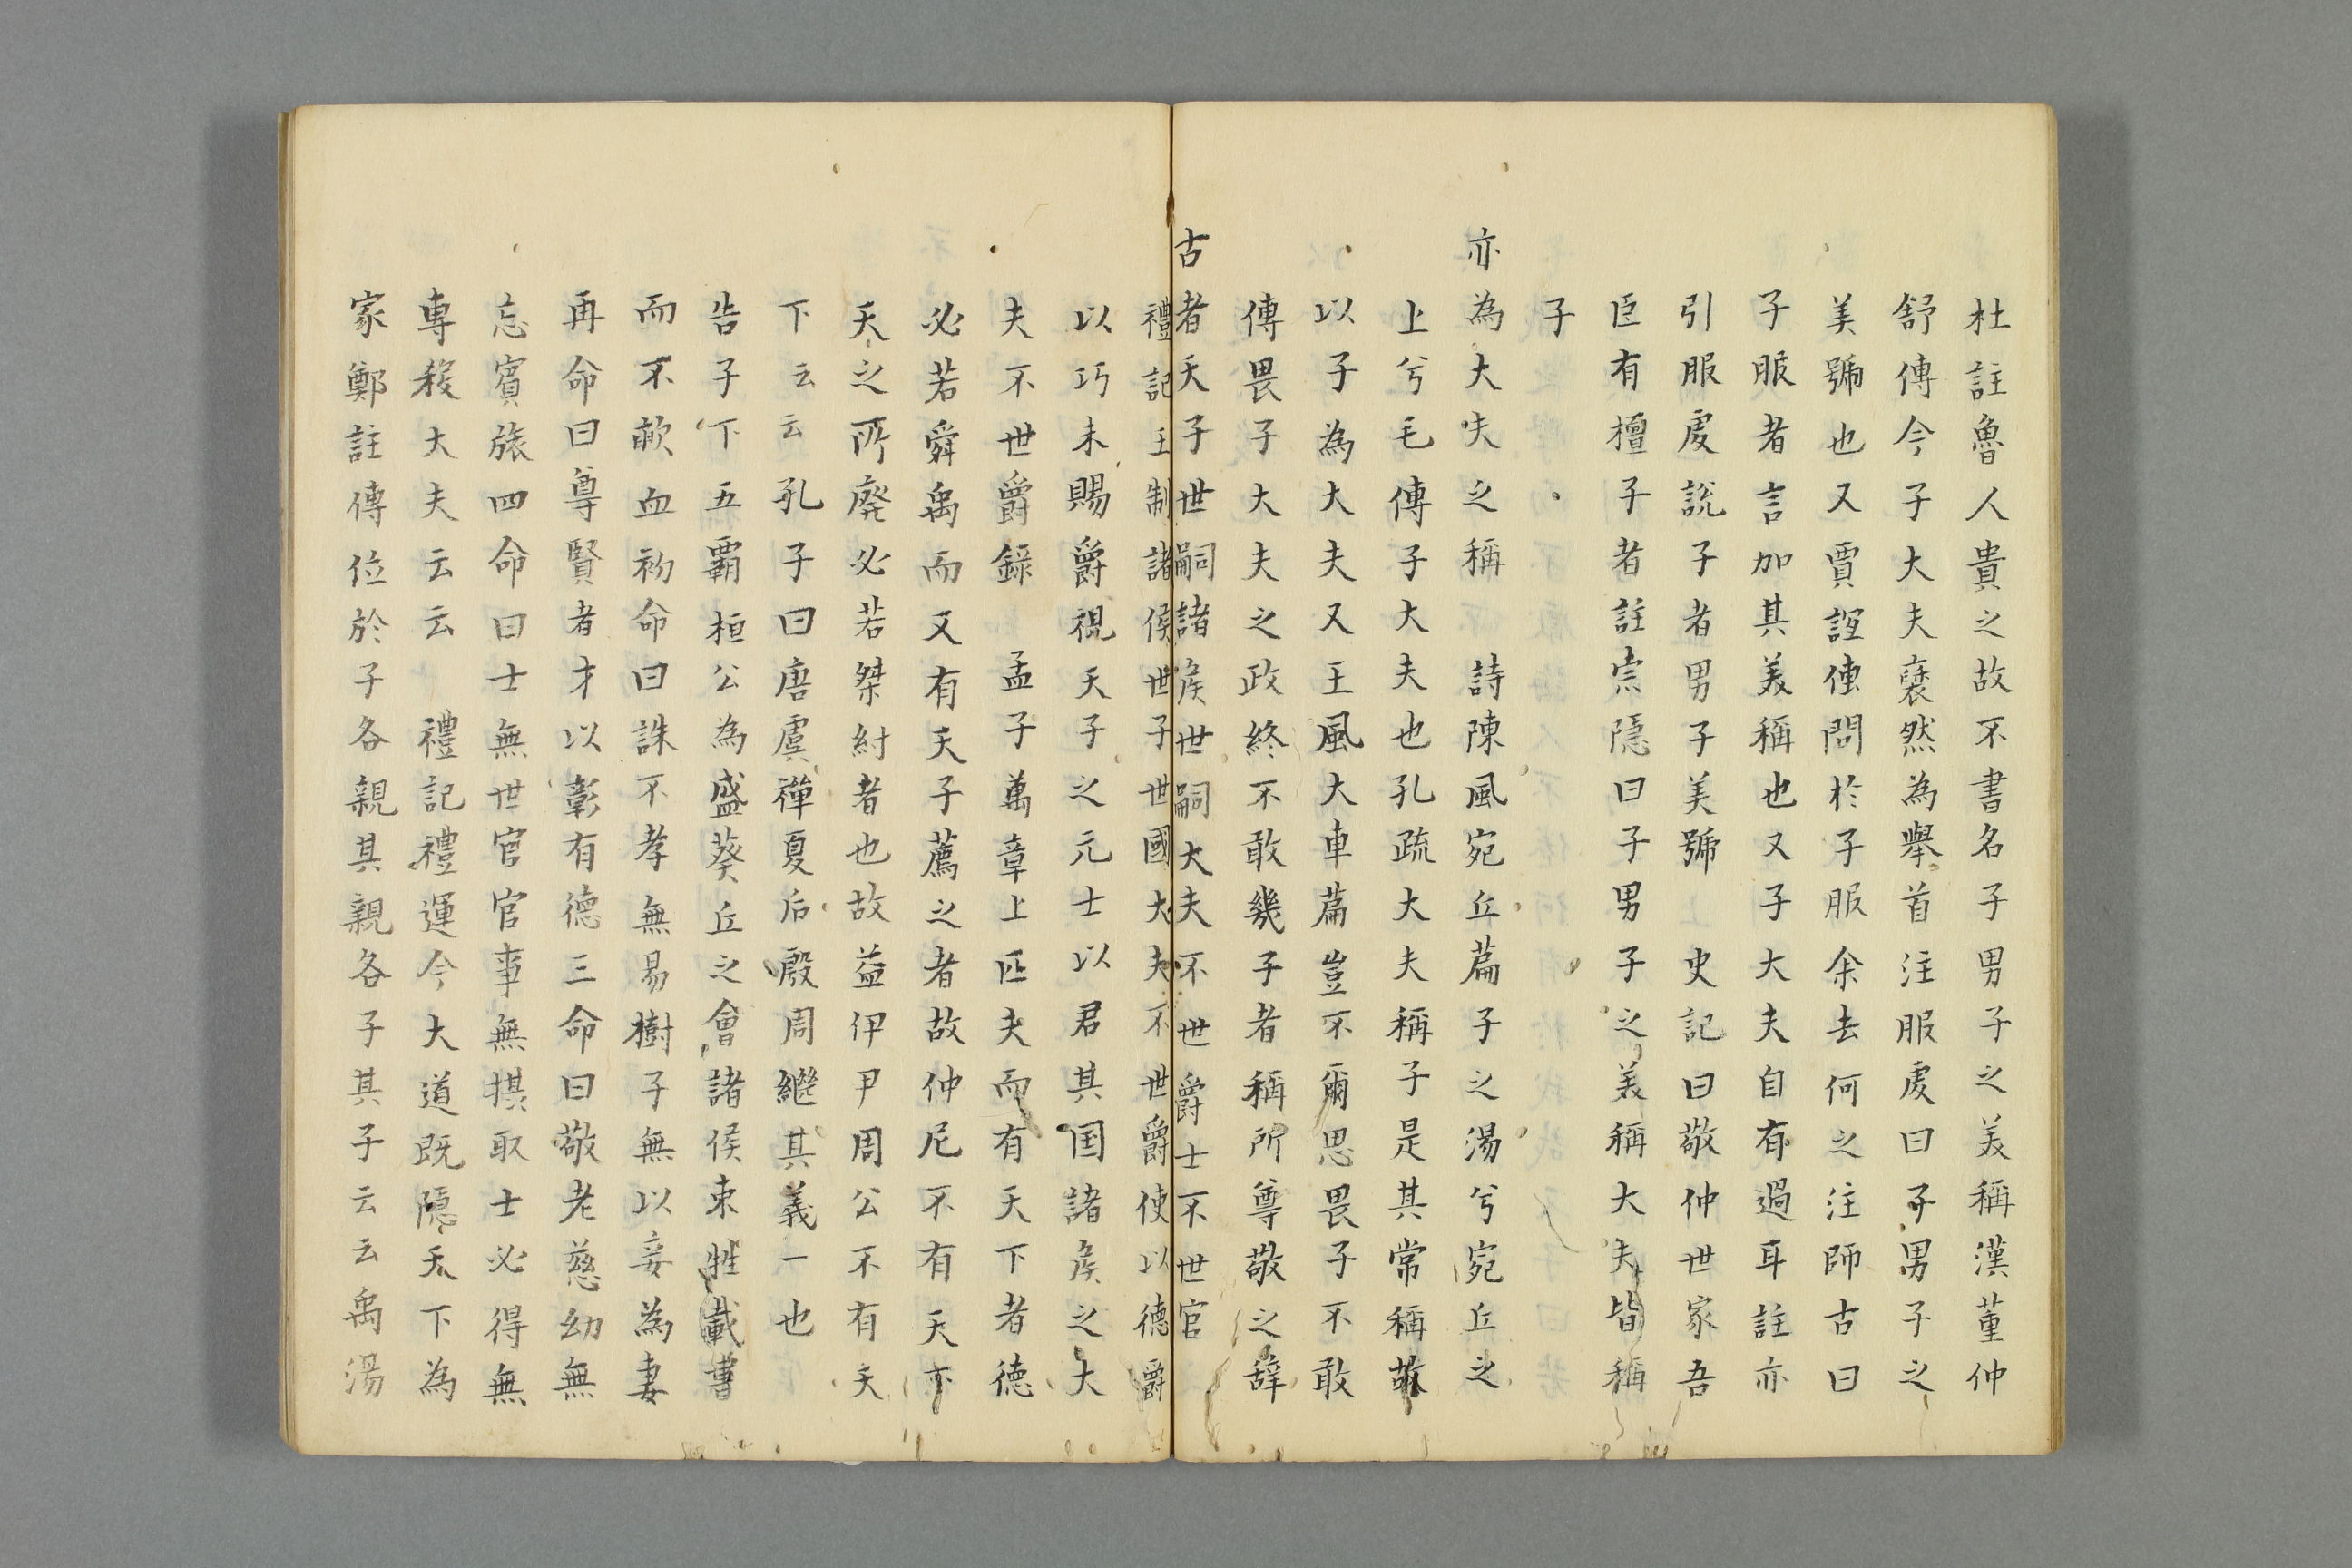 杜註魯人貴之故不書名子男子之美稱漢董仲
舒傳今子大夫襃然為舉首注服虔曰子男子之
美號也又賈誼傳問於子服余去何之注師古曰
子服者言加其美稱也又子大夫自有過耳註亦
引服虔說子者男子美號　史記曰敬仲世家吾
臣有檀子者註索隠曰子男子之美稱大夫皆稱
子
亦為大夫之稱　詩陳風宛丘篇子之湯兮宛丘之
上兮毛傳子大夫也孔疏大夫稱子是其常稱故
以子為大夫又王風大車篇豈不爾思畏子不敢
傳畏子大夫之政終不敢幾子者稱所尊敬之辞
古者天子世嗣諸侯世嗣大夫不世爵士不世官
禮記王制諸侯世子世國大夫不世爵使以德爵
以巧未賜爵視天子之元士以君其国諸侯之大
夫不世爵錄　孟子萬章上匹夫而有天下者德
必若舜禹而又有天子薦之者故仲尼不有天亦
天之所廢必若桀紂者也故益伊尹周公不有天
下云云孔子曰唐虞禅夏后殷周繼其義一也
告子下五覇桓公為盛葵丘之會諸侯束牲載書
而不歃血初命曰誅不孝無易樹子無以妾為妻
再命曰尊賢者才以彰有德三命曰敬老慈幼無
忘賓旅四命曰士無世官官事無摂取士必得無
專殺大夫云云　禮記禮運今大道既隠天下為
家鄭註傳位於子各親其親各子其子云云禹湯